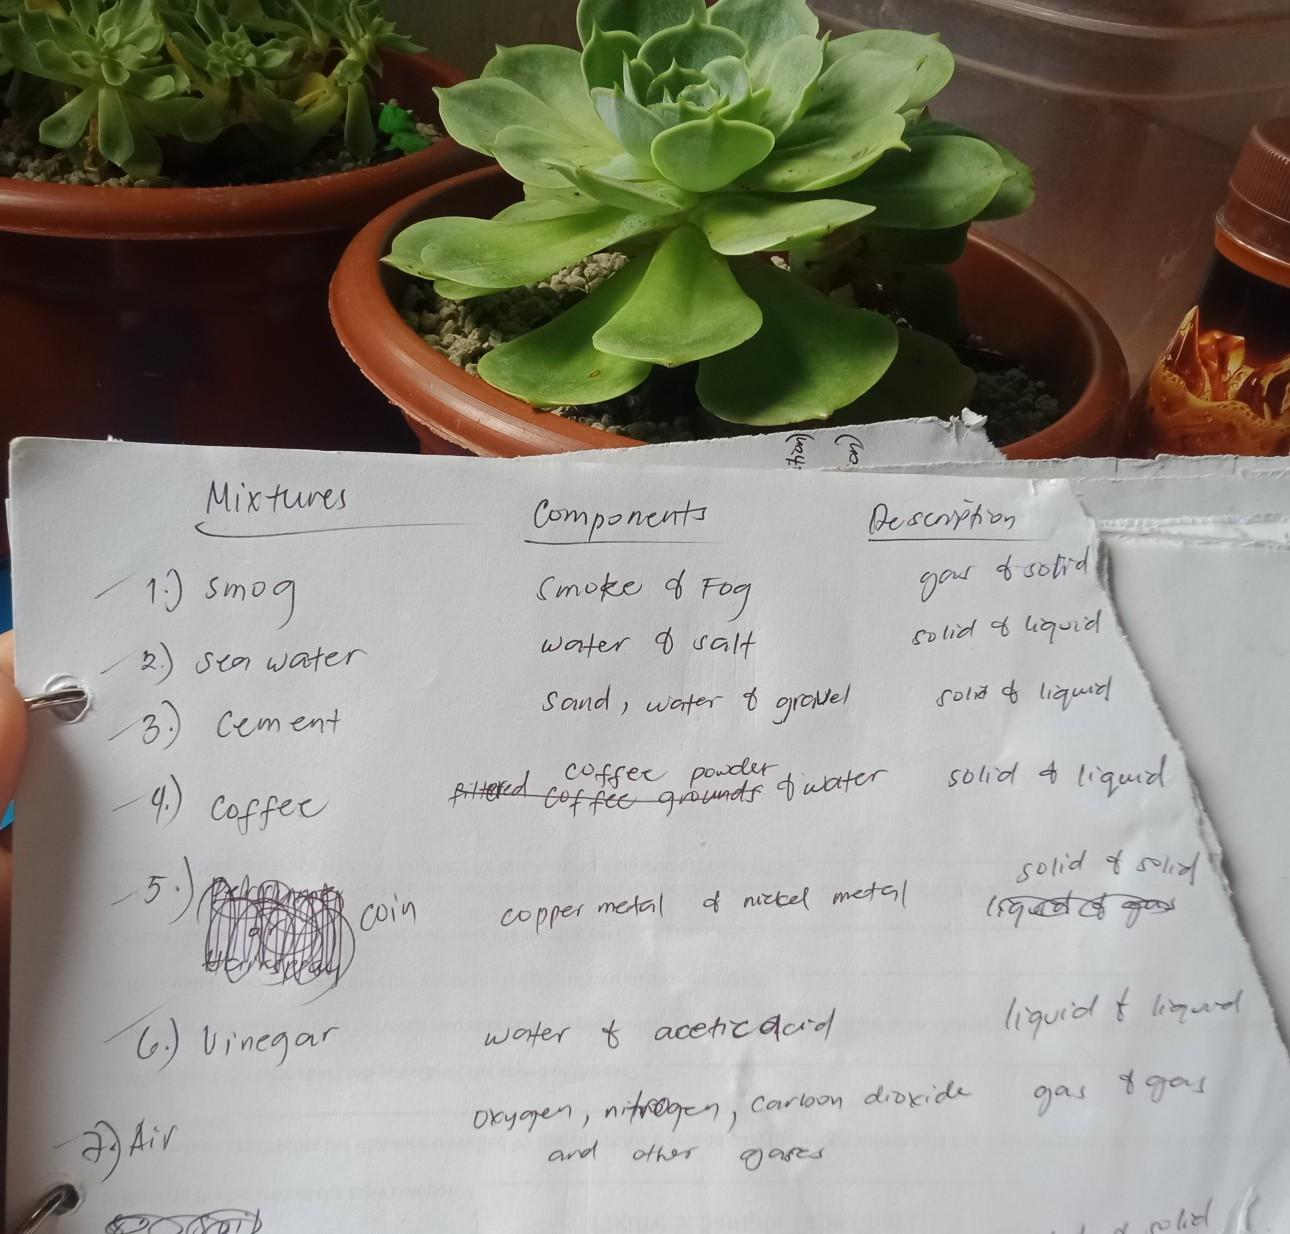 Mixtures Components Description
1.) smog smoke & Fog gas & solid
2.) sea water water & salt solid & liquid
3.) cement sand, water & gravel solid & liquid
coffee powder
4.) coffee filtered coffee grounds & water solid & liquid
solid & solid
5.) coin copper metal & nickel metal liquid & gas
6.) Vinegar water & acetic acid liquid & liquid
7.) Air oxygen, nitrogen, carbon dioxide gas & gas
and other gases
& solid